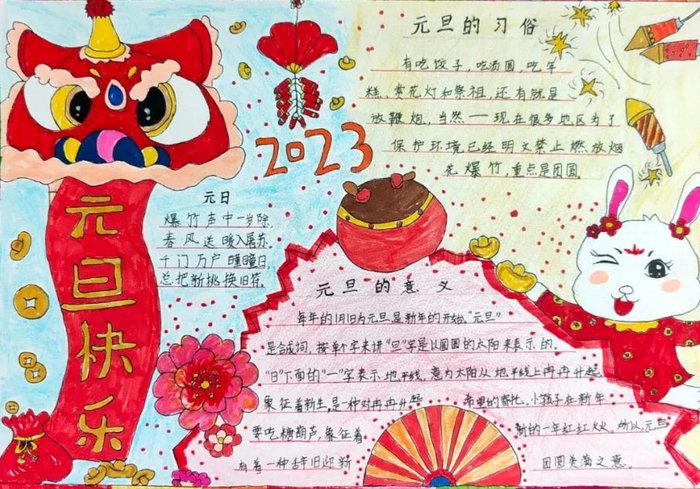 元旦快乐
2023
元旦的习俗
有吃饺子,吃汤圆,吃年
糕,赏花灯和祭祖,还有就是
放鞭炮,当然一一现在很多地区为了
保护环境已经明文禁止燃放烟
花爆竹,重点是团圆
元日
爆竹声中一岁除,
春风送暖入屠苏.
千门万户曈曈日,
总把新桃换旧符.
元旦的意义
每年的1月1日为元旦是新年的开始."元旦"
是合成词,按单个字来讲"旦"字是以圆圆的太阳来表示的.
"日"下面的"一"字表示地平线,意为太阳从地平线上冉冉升起
象征着新生,是一种对冉冉升起 希望的寄托,小孩子在新年
要吃糖葫芦,象征着 新的一年红红火火,所以,元旦
有着一种辞旧迎新 团圆美满之意.